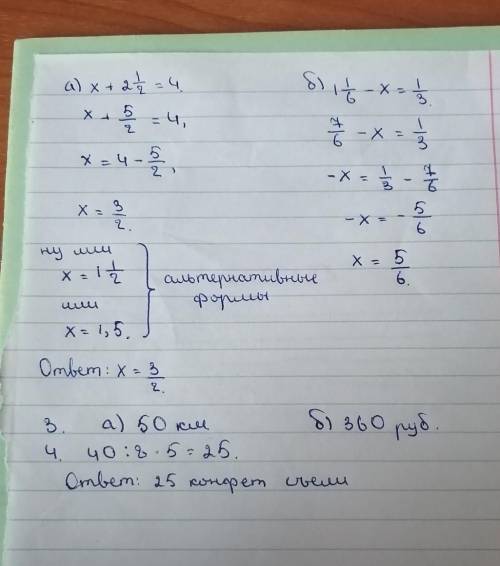 а) x + 2 1/2 = 4.
x + 5/2 = 4,
x = 4 - 5/2,
x = 3/2.
ну или
x = 1 1/2
или
x = 1,5.
альтернативные
формы
Ответ: x = 3/2.
б) 1 1/6 - x = 1/3.
7/6 - x = 1/3
-x = 1/3 - 7/6
-x = - 5/6
x = 5/6.
3. а) 50 км б) 360 руб.
4. 40 : 8 · 5 = 25.
Ответ: 25 конфет съели